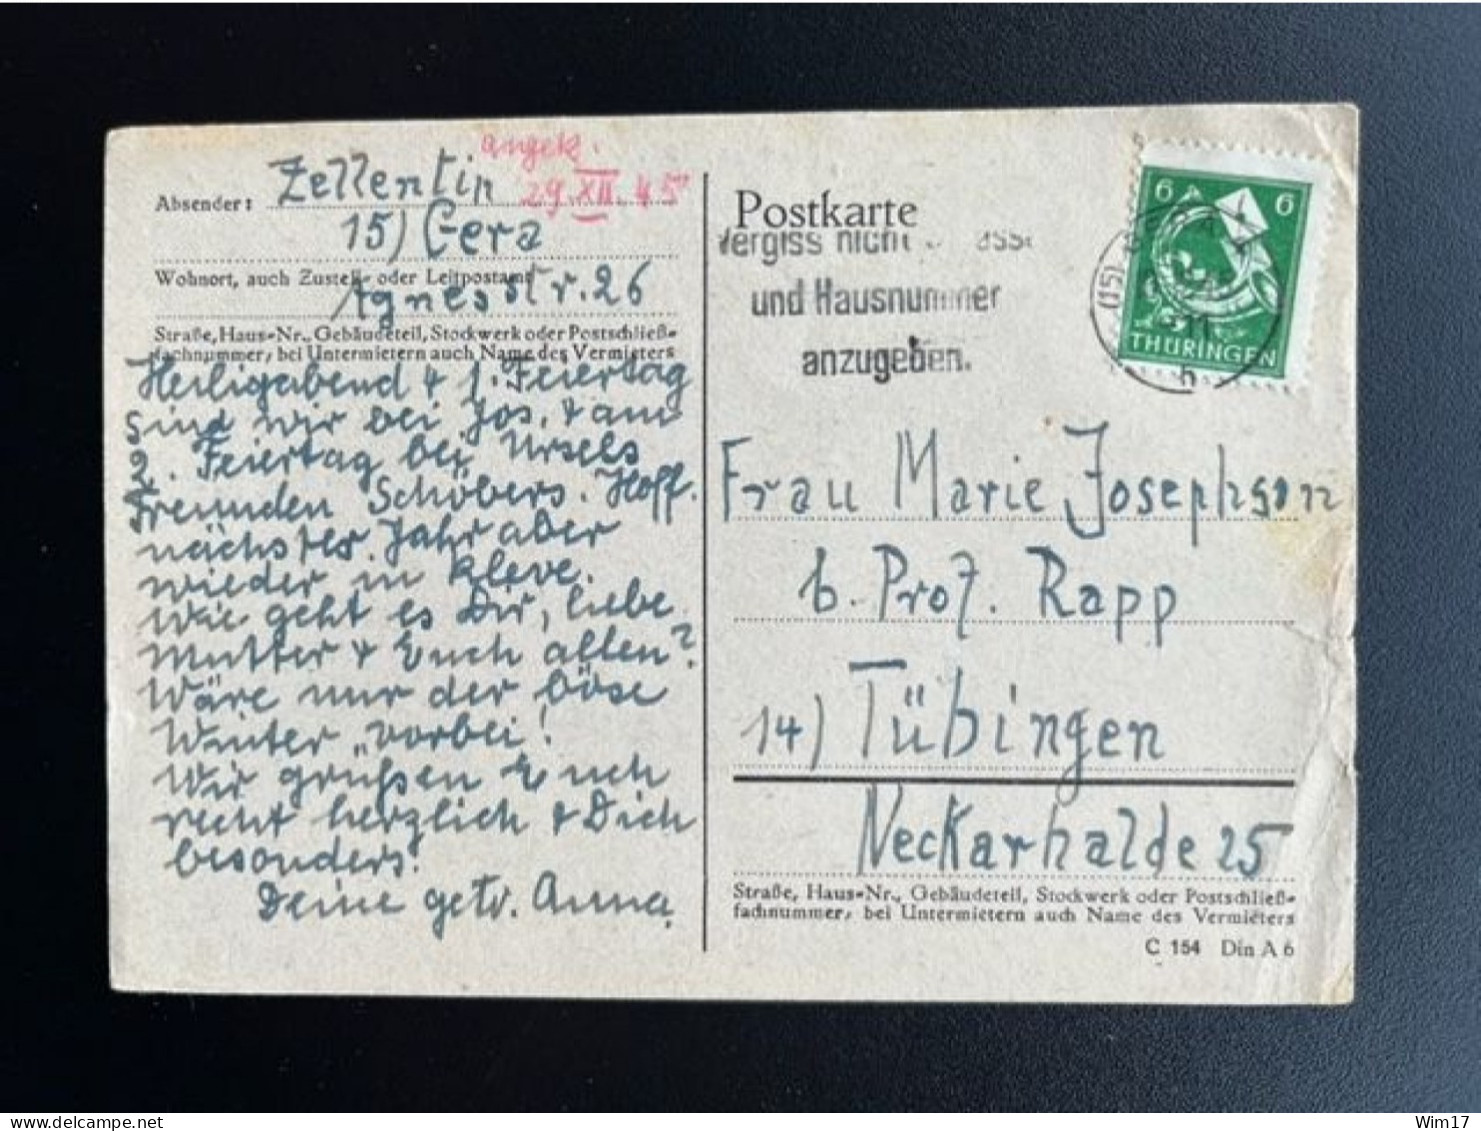 angek.
29.XII.45
Absender: Zellentin
15) Gera
Wohnort, auch Zustell- oder Leitpostamt
Agnesstr. 26
Straße, Haus-Nr., Gebäudeteil, Stockwerk oder Postschließ-
fachnummer, bei Untermietern auch Name des Vermieters
Heiligabend & 1. Feiertag
sind wir bei Jos. & am
2. Feiertag bei Ursels
Freunden Schöbers. Hoff.
nächstes Jahr aber
wieder in Kleve.
Wie geht es Dir, liebe
Mutter & Euch allen?
Wäre nur der böse
Winter vorbei!
Wir grüßen Euch
recht herzlich & Dich
besonders!
Deine getr. Anna.
Postkarte
Vergiss nicht
und Hausnummer
anzugeben.
6 6
THÜRINGEN
(15)
11
h
Frau Marie Josephson
b. Prof. Rapp
14) Tübingen
Neckarhalde 25
Straße, Haus-Nr., Gebäudeteil, Stockwerk oder Postschließ-
fachnummer, bei Untermietern auch Name des Vermieters
C 154 Din A 6
Wim17